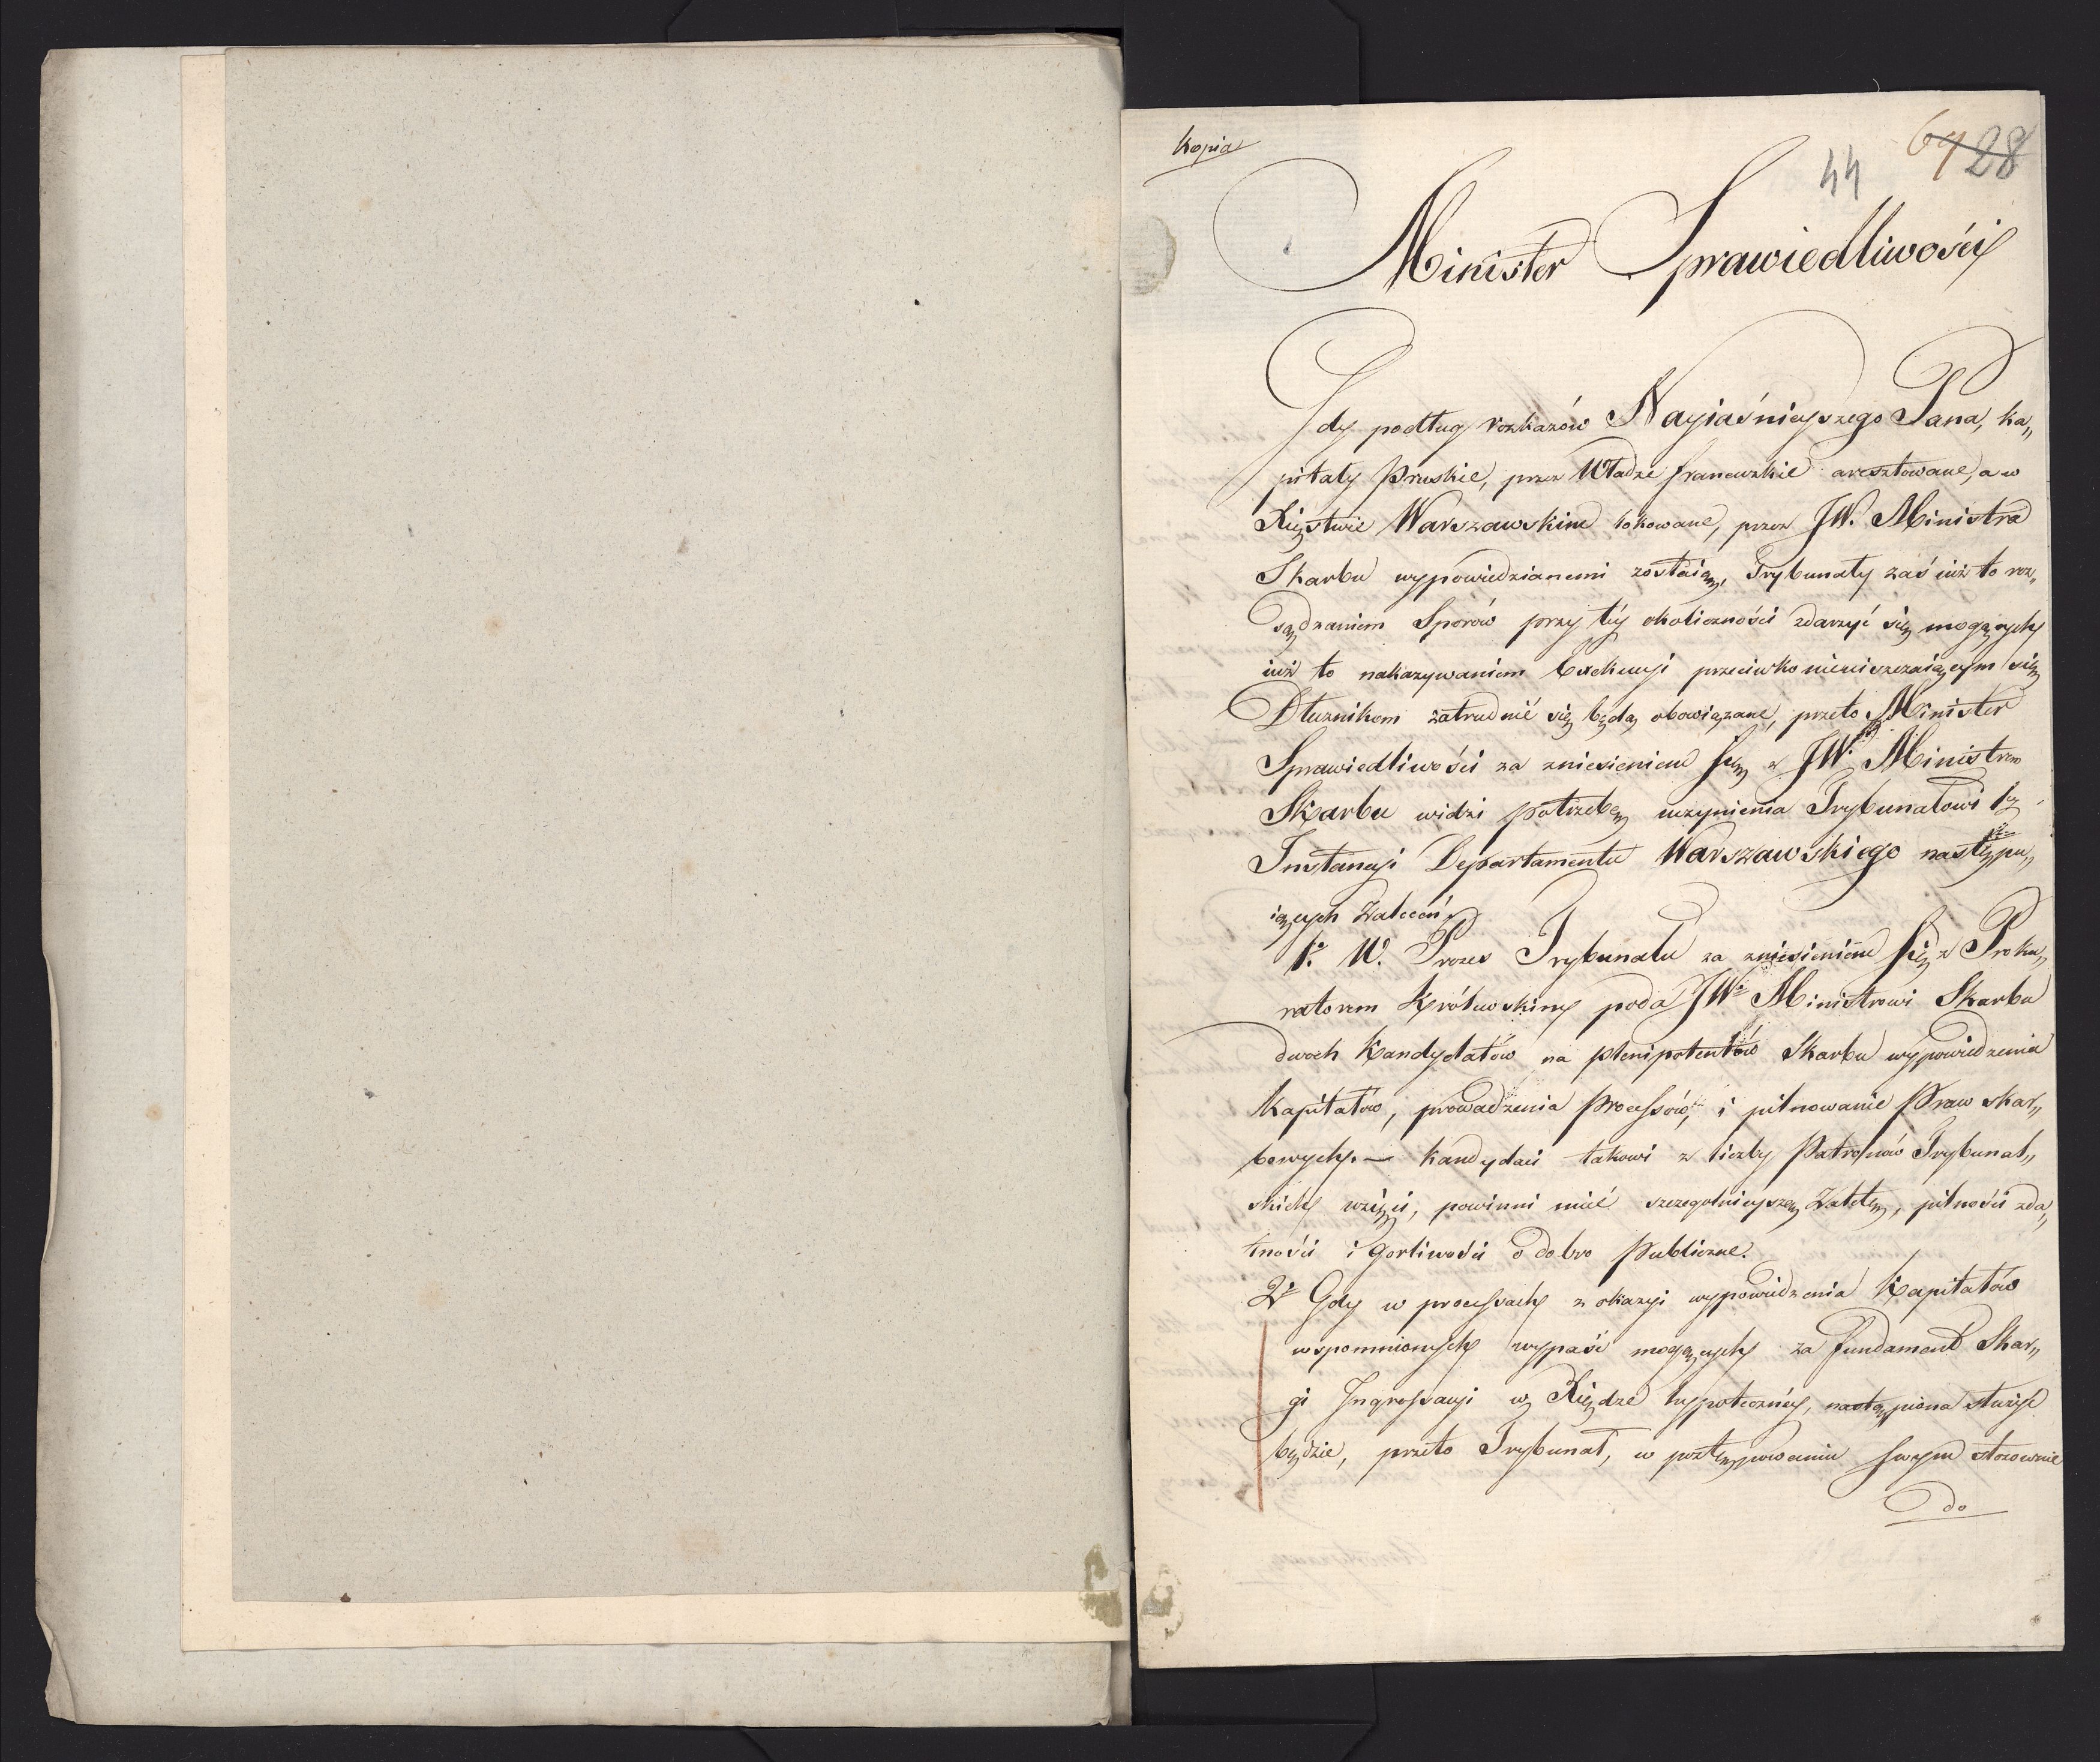 Kopia
44 67 28
Minister Sprawiedliwości
Gdy podług rozkazów Nayiaśnieyszego Pana, ka„
pitały Pruskie, przez Władze francuzkie aresztowane, a w
Xięstwie Warszawskim lokowane, przez JW. Ministra
Skarbu wypowiedzianemi zostaią, Trybunały zaś iuż to roz„
sądzaniem Sporów przy téy okoliczności zdarzyć się mogących
iuż to nakazywaniem Exekucyi przeciwko nieuiszczaiącym się
Dłużnikom zatrudnić się będą obowiązane, przeto Minister
Sprawiedliwości za zniesieniem się z JW. Ministrem
Skarbu widzi potrzebę uczynienia Trybunałowi 1éy
Instancyi Departamentu Warszawskiego następu„
iących Zaleceń.
1o. W. Prezes Trybunału za zniesieniem się z Proku„
ratorem Królewskim poda JWu Ministrowi Skarbu
dwoch Kandydatów na plenipotentów Skarbu wypowiedzenia
Kapitałów, prowadzenia Processów, i pilnowanie Praw skar„
bowych. — Kandydaci takowi z liczby Patronów Trybunal„
skich wzięci, powinni mieć szczegolnieyszą Zaletę, pilności zda„
tności i gorliwości o dobro Publiczne.
2o Gdy w processach z okazyi wypowiedzenia Kapitałów
wspomnionych wypaść mogących za fundament Skar„
gi Ingrossacyi w Xiędze hypoteczney, nastąpiona służyć
będzie, przeto Trybunał, w postępowaniu swym stosownie
do